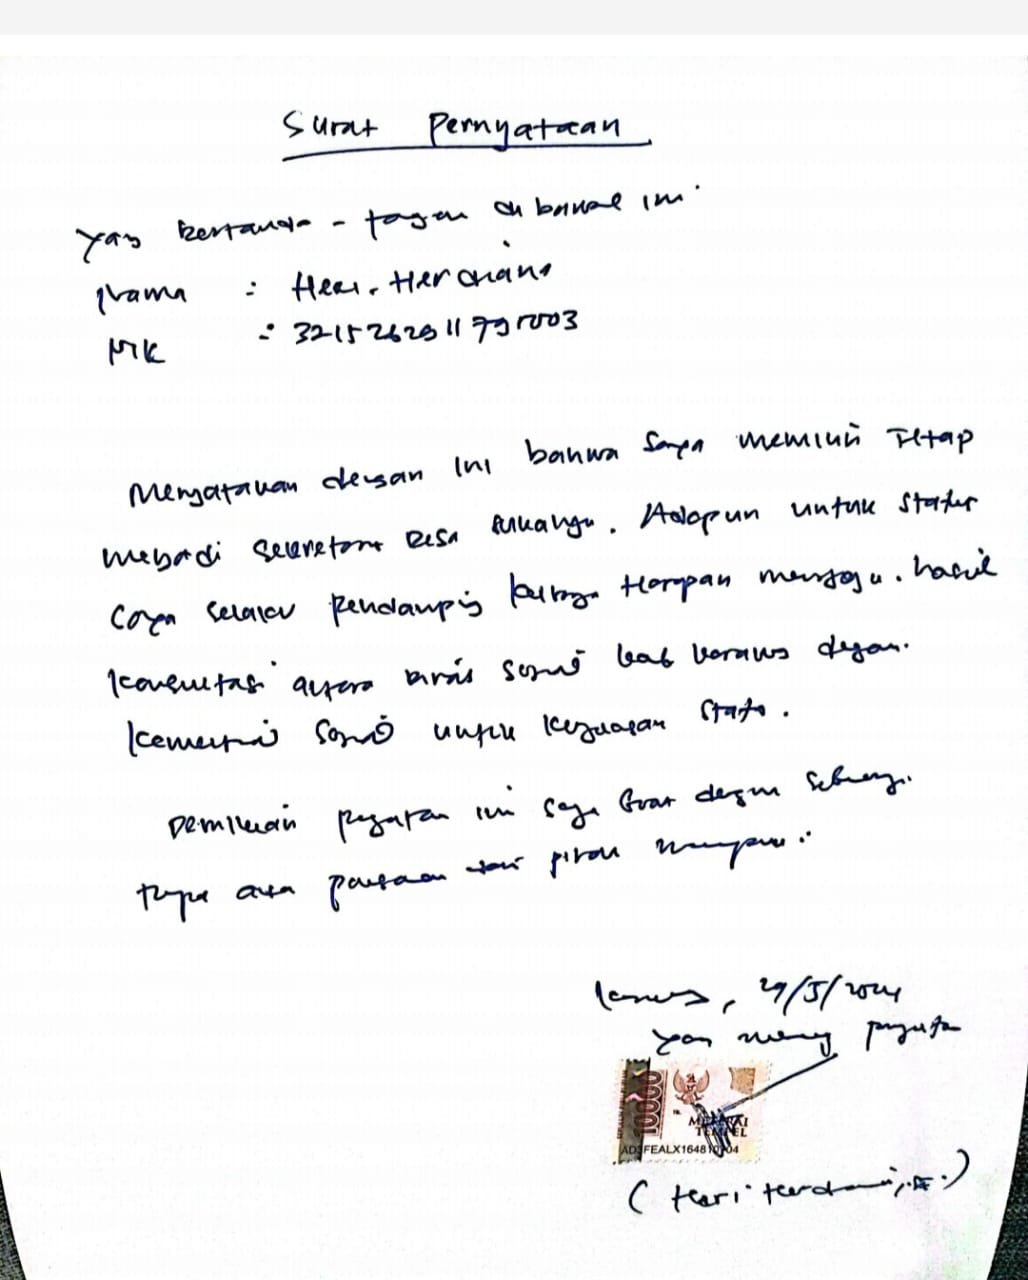 Surat Pernyataan
Yang bertanda-tangan di bawah ini
Nama : Heri. Herdiana
NIK : 3215262911791003
Menyatakan dengan ini bahwa saya memilih tetap
menjadi Sekretaris Desa. Adapun untuk status
saya selaku pendamping keluarga Harapan menunggu. hasil
konsultasi antara Dinas Sosial kab Karawang dengan.
kementrian Sosial untuk kejelasan status.
Demikian pernyataan ini saya buat dengan
tanpa ada paksaan dari pihak manapun.
29/5/2024
Yang
METERAI
TEMPEL
(Heri